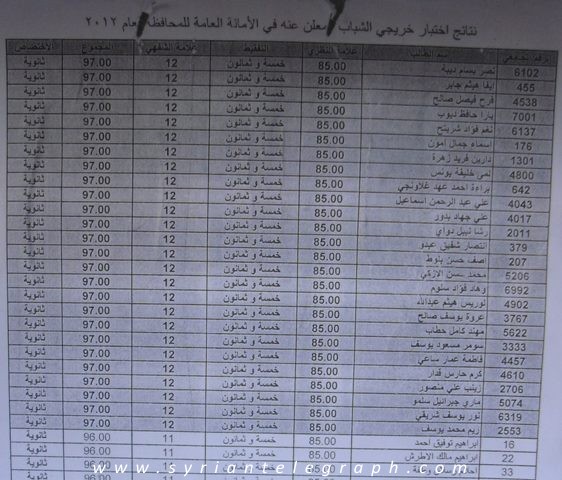 نتائج اختبار خريجي الشباب المعلن عنه في الأمانة العامة للمحافظة لعام ٢٠١٢
رقم الطالب علامة النظري التفقيط علامة الشفهي المجموع الاختصاص
6102 نصر بسام ديبة 85.00 خمسة و ثمانون 12 97.00 ثانوية
455 ايفا هيثم جابر 85.00 خمسة و ثمانون 12 97.00 ثانوية
4538 فرح فيصل صالح 85.00 خمسة و ثمانون 12 97.00 ثانوية
7001 يارا حافظ ديوب 85.00 خمسة و ثمانون 12 97.00 ثانوية
6137 نغم فؤاد شريتح 85.00 خمسة و ثمانون 12 97.00 ثانوية
176 اسماء جمال أمون 85.00 خمسة و ثمانون 12 97.00 ثانوية
1301 دارين فريد زهرة 85.00 خمسة و ثمانون 12 97.00 ثانوية
4800 لمى خليفة يونس 85.00 خمسة و ثمانون 12 97.00 ثانوية
642 براءة احمد عهد غلاونجي 85.00 خمسة و ثمانون 12 97.00 ثانوية
4043 علي عبد الرحمن اسماعيل 85.00 خمسة و ثمانون 12 97.00 ثانوية
4017 علي جهاد بدور 85.00 خمسة و ثمانون 12 97.00 ثانوية
2011 رشا نبيل دواي 85.00 خمسة و ثمانون 12 97.00 ثانوية
379 انتصار شفيق عبدو 85.00 خمسة و ثمانون 12 97.00 ثانوية
207 اصف حسن بلوط 85.00 خمسة و ثمانون 12 97.00 ثانوية
5206 محمد حسن الازكي 85.00 خمسة و ثمانون 12 97.00 ثانوية
6992 وهاد فؤاد سلوم 85.00 خمسة و ثمانون 12 97.00 ثانوية
4902 لوريس هيثم عبدالله 85.00 خمسة و ثمانون 12 97.00 ثانوية
3767 عروة يوسف صالح 85.00 خمسة و ثمانون 12 97.00 ثانوية
5622 مهند كامل حطاب 85.00 خمسة و ثمانون 12 97.00 ثانوية
3333 سومر مسعود يوسف 85.00 خمسة و ثمانون 12 97.00 ثانوية
4457 فاطمة عمار ساعي 85.00 خمسة و ثمانون 12 97.00 ثانوية
4610 كرم حارس قدار 85.00 خمسة و ثمانون 12 97.00 ثانوية
2706 زينب علي منصور 85.00 خمسة و ثمانون 12 97.00 ثانوية
5074 ماري جبرائيل سلمو 85.00 خمسة و ثمانون 12 97.00 ثانوية
6319 نور يوسف شريقي 85.00 خمسة و ثمانون 12 97.00 ثانوية
2553 ريم محمد يوسف 85.00 خمسة و ثمانون 12 97.00 ثانوية
16 ابراهيم توفيق احمد 85.00 خمسة و ثمانون 11 96.00 ثانوية
22 ابراهيم مالك الاطرش 85.00 خمسة و ثمانون 11 96.00 ثانوية
33 85.00 خمسة و ثمانون 11 96.00 ثانوية
www.syriantelegraph.com